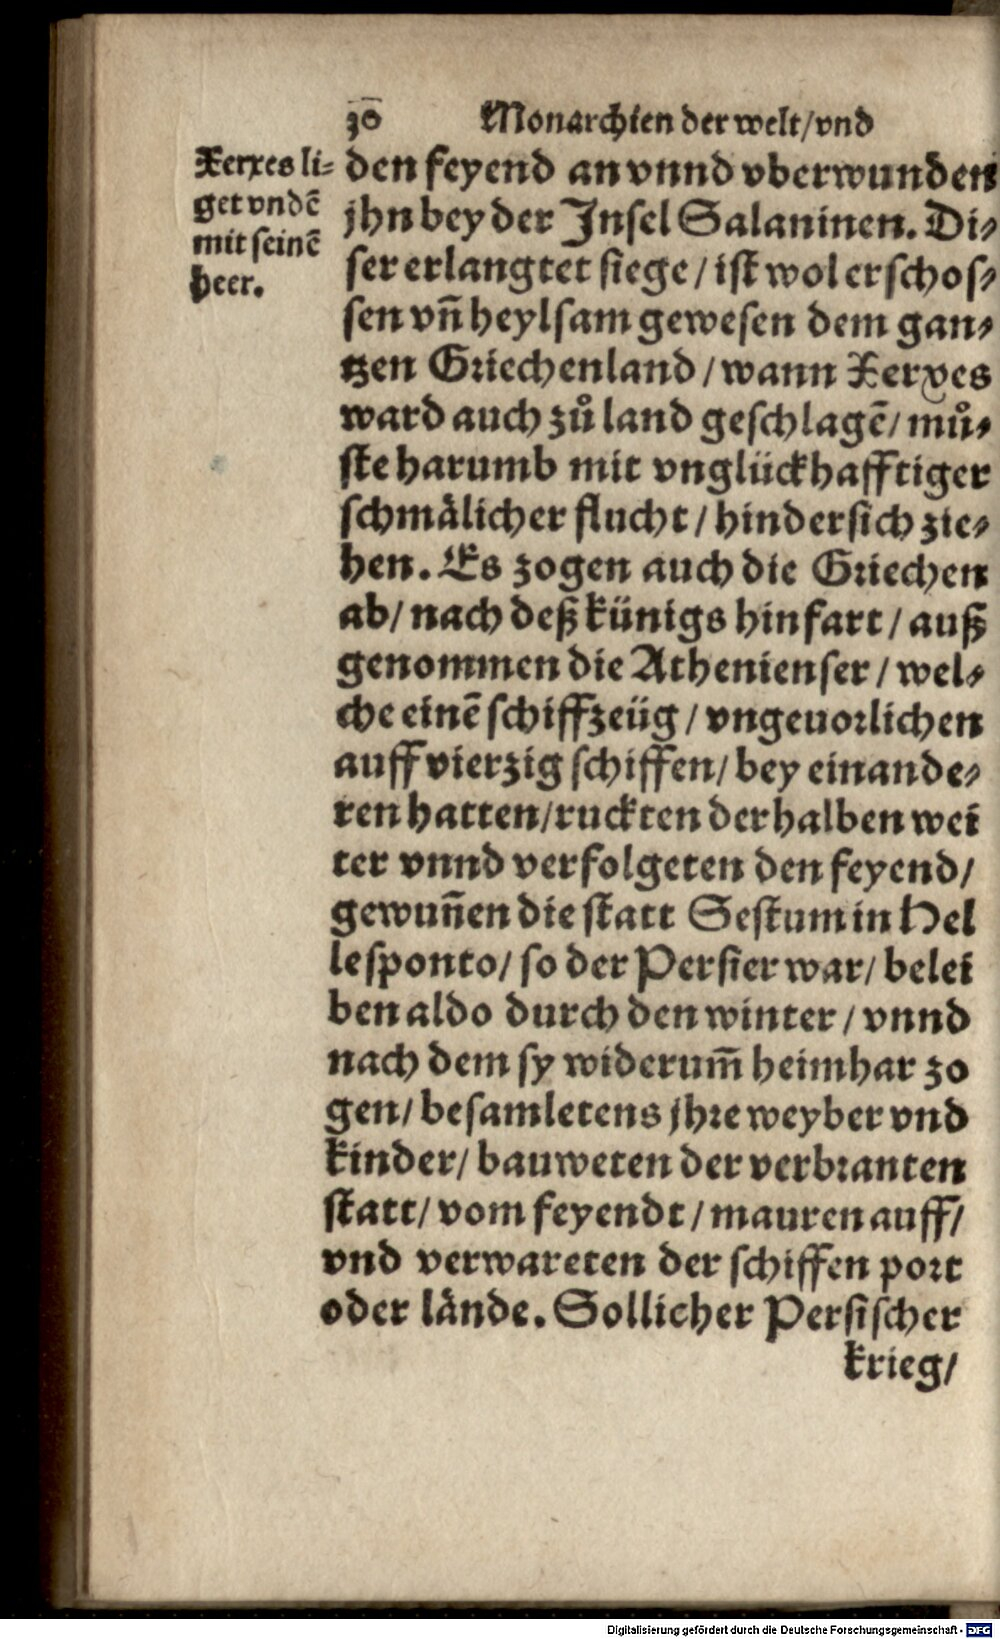 30 Monarchien der welt/vnd
Xerxes li⸗
get vndē
mit seinē
heer.
den feyend an vnnd vberwunden
jhn bey der Insel Salaninen. Di⸗
ser erlangtet siege/ ist wol erschos⸗
sen vn̄ heylsam gewesen dem gan⸗
tzen Griechenland/ wann Xerxes
ward auch zů land geschlagē/ mů⸗
ste harumb mit vnglückhafftiger
schmälicher flucht/ hindersich zie⸗
hen. Es zogen auch die Griechen
ab/ nach deß künigs hinfart/ auß
genommen die Athenienser/ wel⸗
che einē schiffzeüg/ vngeuorlichen
auff vierzig schiffen/ bey einande⸗
ren hatten/ ruckten derhalben wei
ter vnnd verfolgeten den feyend/
gewun̄en die statt Sestum in Hel
lesponto/ so der Persier war/ belei
ben aldo durch den winter/ vnnd
nach dem sy widerum̄ heimhar zo
gen/ besamletens jhre weyber vnd
kinder/ bauweten der verbranten
statt/ vom feyendt/ mauren auff/
vnd verwareten der schiffen port
oder lände. Sollicher Persischer
krieg/
Digitalisierung gefördert durch die Deutsche Forschungsgemeinschaft - DFG